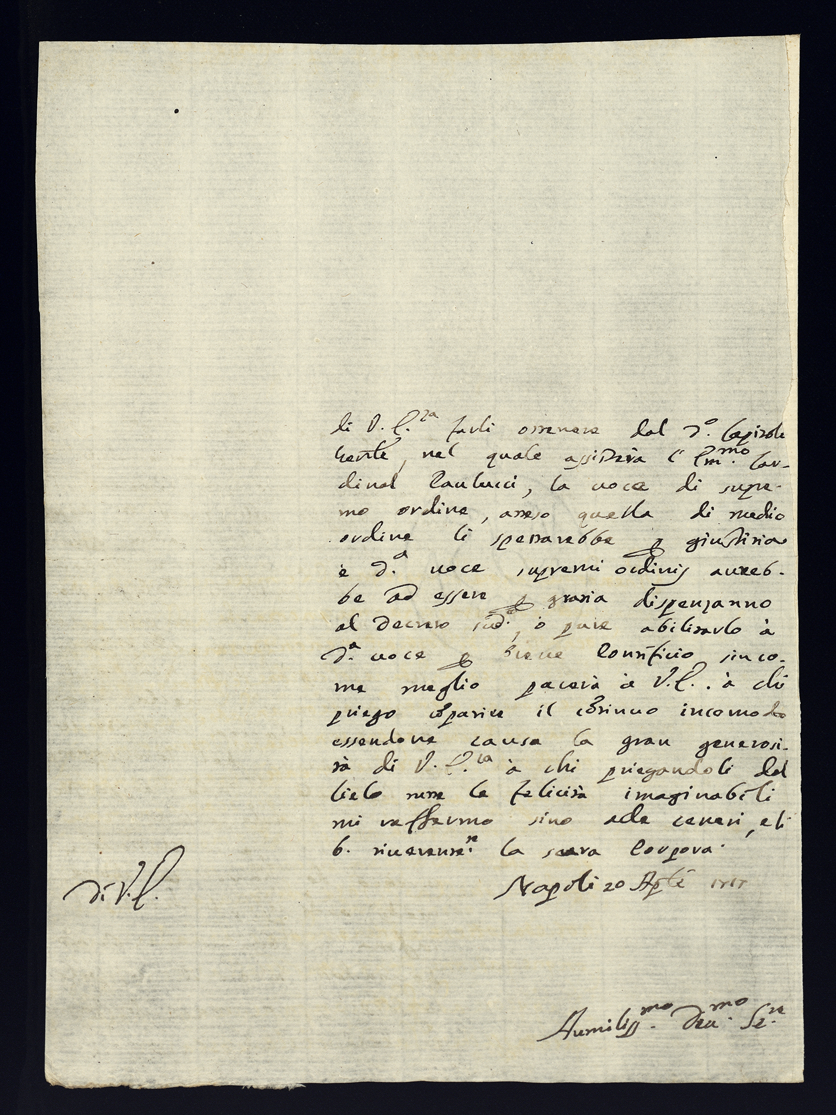 di V. E.za farli ottenere dal do. Capitolo
Gentle, nel quale assisterà l'Em.mo Car-
dinal Paulucci, la voce di supre-
mo ordine, atteso quella di medio
ordine li spettarebbe p giustitia
e d.a voce supremi ordinis aureb-
be ad essere p gratia dispenzanno
al decreto sud.o, ò pure abilitarlo à
d.a voce p Breve Pontificio sinco-
me meglio parerà à V. E.. à chi
priego cõpatire il cõtinuo incomodo
essendone causa la gran generosi-
tà di V. E.za à chi priegandoli dal
Cielo tutte le felicità imaginabili
mi raffermo sino alle ceneri, e li
b. riverente.te la sacra Porpora.
Napoli 20 Aple 1717
di V. E.
Humiliss.mo Dev.mo Se.re